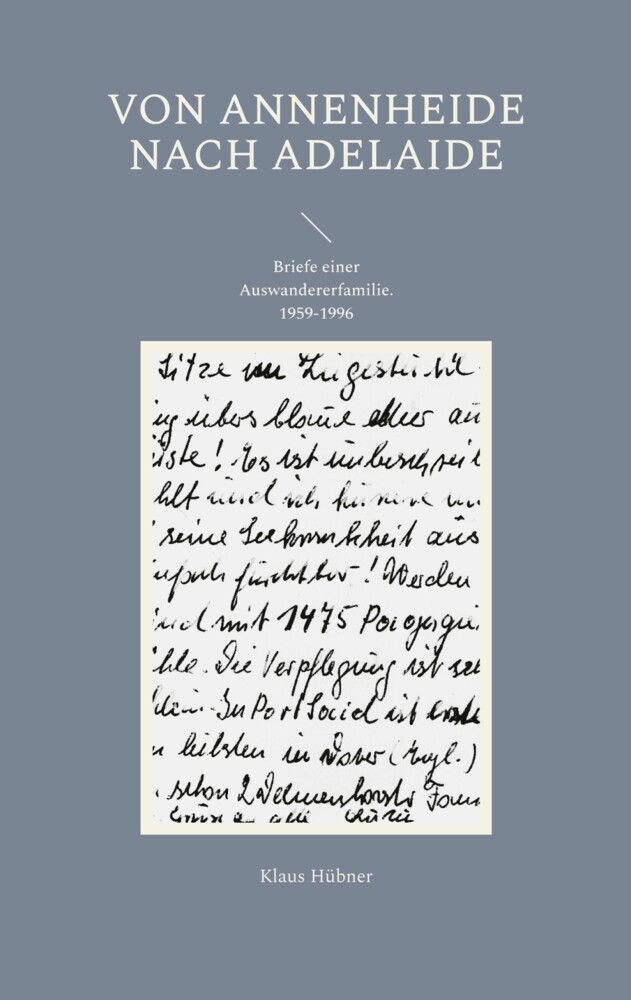 VON ANNENHEIDE
NACH ADELAIDE
Briefe einer
Auswandererfamilie.
1959-1996
Sitze im Liegestuhl
übers blaue Meer
! Es ist unbeschrei
und ich
seine Seekrankheit aus
furchtbar! Werden
mit 1475 Passagie
Die Verpflegung ist
In Port Said ist erste
in Dover (Engl.)
schon 2 Delmenhorster Fam
alle
Klaus Hübner